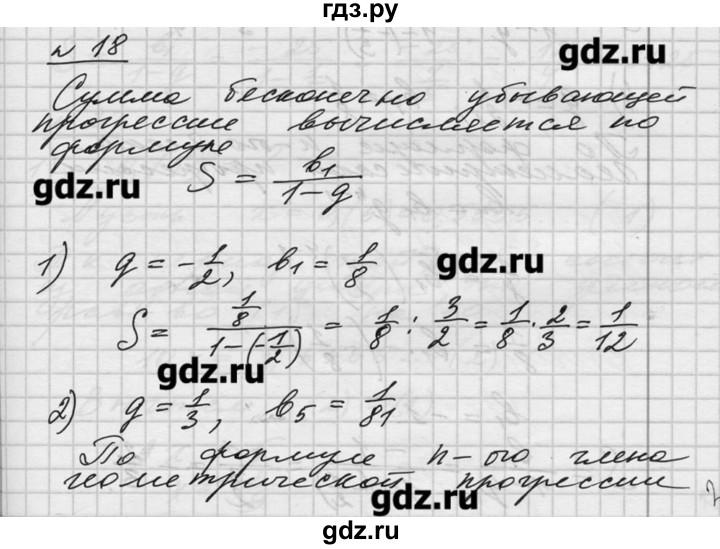 гдз.ру
№ 18
gdz.ru
Сумма бесконечно убывающей
прогрессии вычисляется по
формуле
gdz.ru
S = b₁/(1-q)
1) q = -1/2, b₁ = 1/8
gdz.ru
S = (1/8)/(1-(-1/2)) = 1/8 : 3/2 = 1/8 · 2/3 = 1/12
gdz.ru
2) q = 1/3, b₅ = 1/81
По формуле n-ого члена
геометрической прогрессии
gdz.ru
gdz.ru